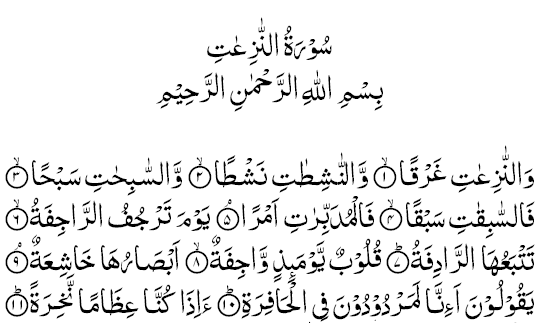 سُوۡرَةُ النّٰزِعٰتِ
بِسۡمِ اللهِ الرَّحۡمٰنِ الرَّحِيۡمِ
وَالنّٰزِعٰتِ غَرۡقًا ۙ‏﴿۱﴾ وَّالنّٰشِطٰتِ نَشۡطًا ۙ‏﴿۲﴾ وَّالسّٰبِحٰتِ سَبۡحًا ۙ‏﴿۳﴾
فَالسّٰبِقٰتِ سَبۡقًا ۙ‏﴿۴﴾ فَالۡمُدَبِّرٰتِ اَمۡرًا‌ ۘ‏﴿۵﴾ يَوۡمَ تَرۡجُفُ الرَّاجِفَةُ ۙ‏﴿۶﴾
تَتۡبَعُهَا الرَّادِفَةُ ؕ‏﴿۷﴾ قُلُوۡبٌ يَّوۡمَٮِٕذٍ وَّاجِفَةٌ ۙ‏﴿۸﴾ اَبۡصَارُهَا خَاشِعَةٌ‌ ۘ‏﴿۹﴾
يَقُوۡلُوۡنَ ءَاِنَّا لَمَرۡدُوۡدُوۡنَ فِى الۡحَـافِرَةِ ؕ‏﴿۱۰﴾ ءَاِذَا كُنَّا عِظَامًا نَّخِرَةً ؕ‏﴿۱۱﴾